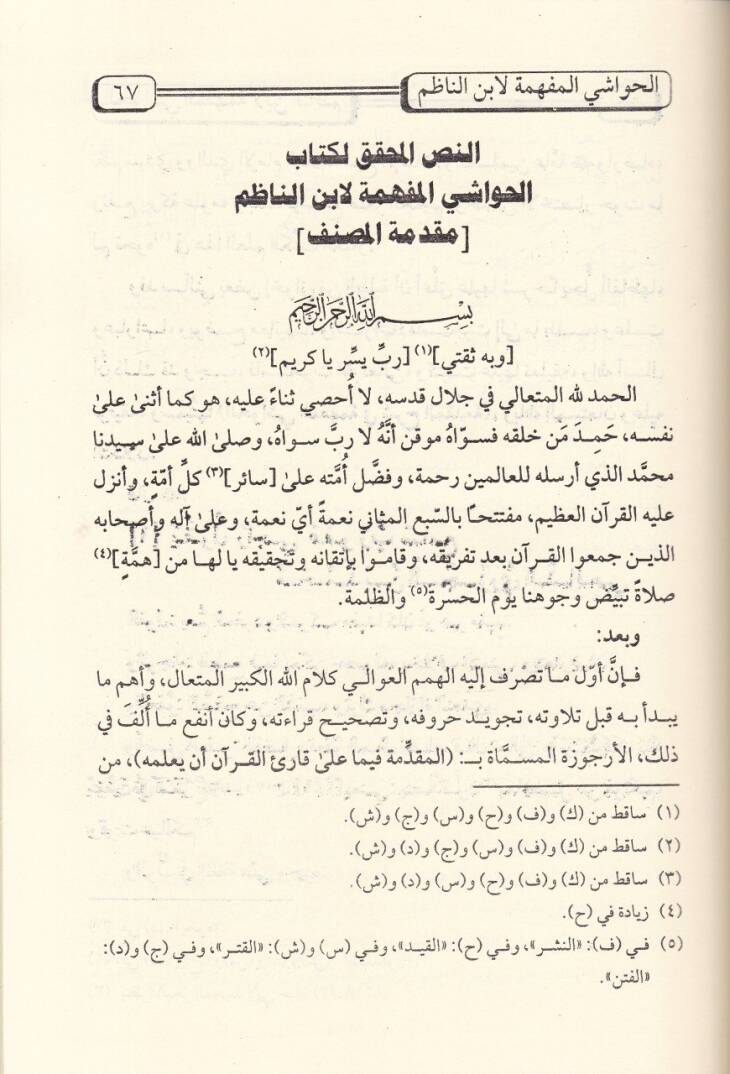 الحواشي المفهمة لابن الناظم
٦٧
النص المحقق لكتاب
الحواشي المفهمة لابن الناظم
[مقدمة المصنف]
بسم الله الرحمن الرحيم
[وبه ثقتي](١) [ربِّ يسِّر يا كريم](٢)
الحمد لله المتعالي في جلال قدسه، لا أُحصي ثناءً عليه، هو كما أثنىٰ علىٰ
نفسه، حَمِدَ مَن خلقه فسوّاهُ موقن أنَّهُ لا ربَّ سواهُ، وصلىٰ الله علىٰ سيدنا
محمَّد الذي أرسله للعالمين رحمة، وفضَّل أُمَّته علىٰ [سائر](٣) كلِّ أمّةٍ، وأنزل
عليه القرآن العظيم، مفتتحًا بالسّبع المثاني نعمةً أيّ نعمة، وعلىٰ آله وأصحابه
الذين جمعوا القرآن بعد تفريقه، وقاموا بإتقانه وتحقيقه يا لها من [همَّةٍ](٤)
صلاةً تبيِّض وجوهنا يوم الحسرة(٥) والظلمة.
وبعد:
فإنَّ أوّل ما تصرف إليه الهمم العوالي كلام الله الكبير المتعال، وأهم ما
يبدأ به قبل تلاوته، تجويد حروفه، وتصحيح قراءته، وكان أنفع ما أُلِّفَ في
ذلك، الأرجوزة المسمَّاة بـ: (المقدِّمة فيما علىٰ قارئ القرآن أن يعلمه)، من
(١) ساقط من (ك) و(ف) و(ح) و(س) و(ج) و(ش).
(٢) ساقط من (ك) و(ف) و(س) و(ج) و(د) و(ش).
(٣) ساقط من (ك) و(ف) و(ح) و(س) و(د) و(ش).
(٤) زيادة في (ح).
(٥) في (ف): «النشر»، وفي (ح): «القيد»، وفي (س) و(ش): «القتر»، وفي (ج) و(د):
«الفتن».